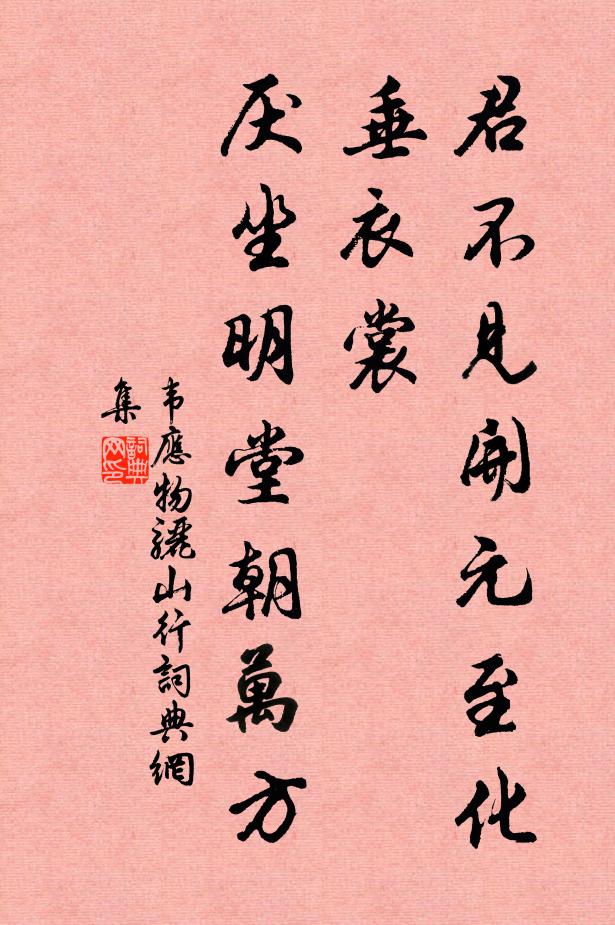 君不見開元至化
垂衣裳
厌坐明堂朝萬方
韦應物驪山行詞典網
集
詞典
网印